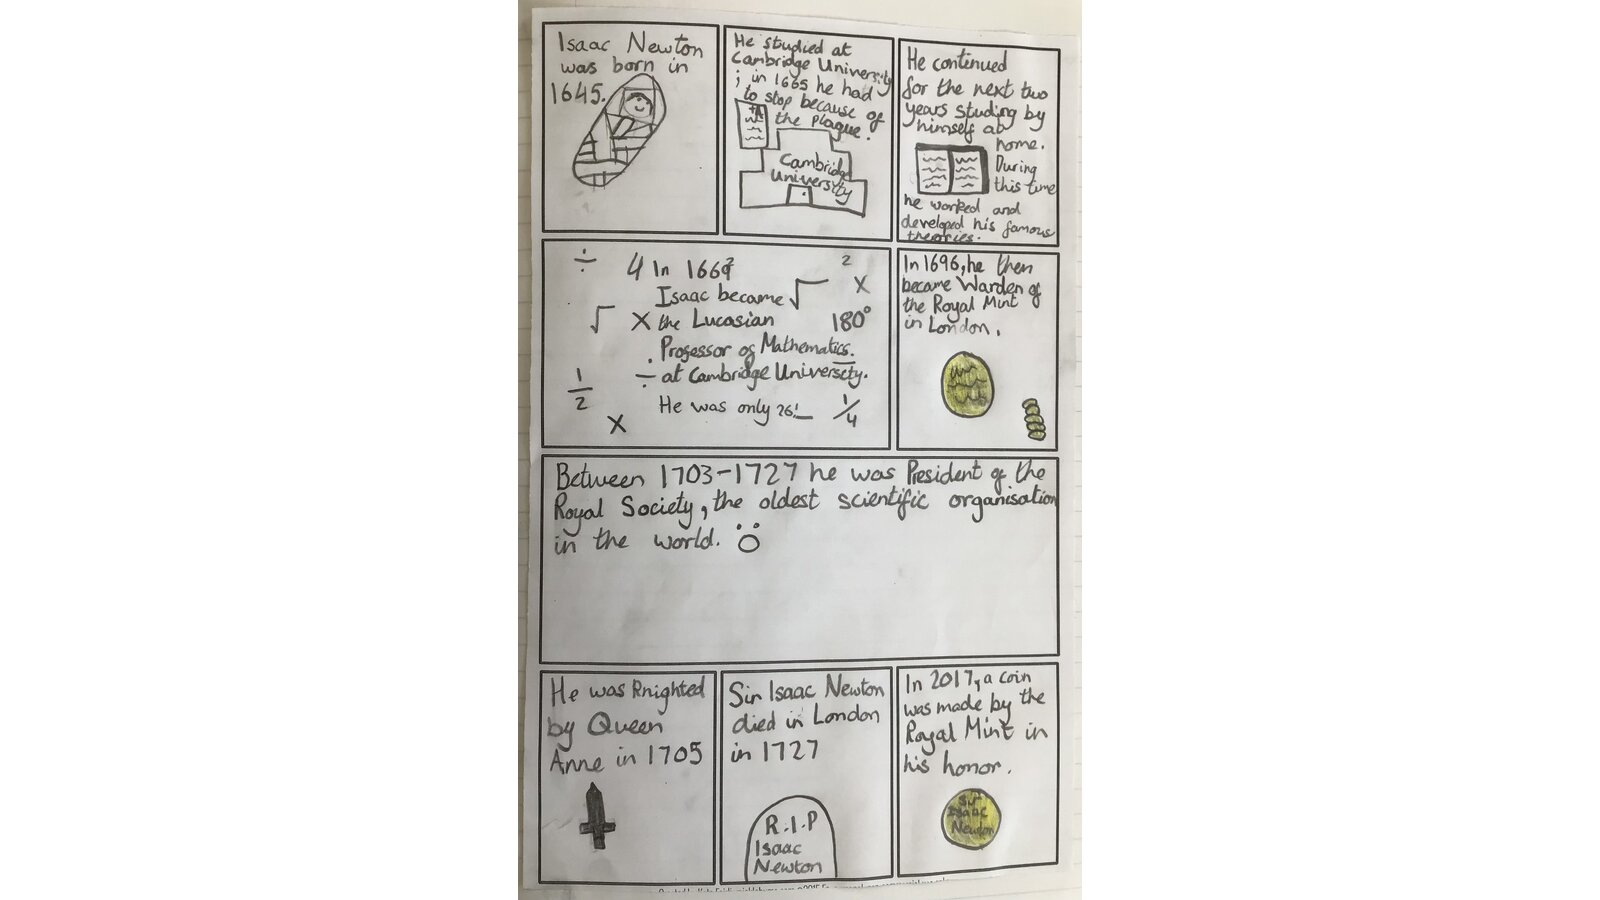 Isaac Newton
was born in
1645.
He studied at
Cambridge University
; in 1665 he had
to stop because of
the plague.
Cambridge
University
He continued
for the next two
years studing by
himself at
home.
During
this time
he worked and
developed his famous
theories.
÷ 4 In 1669 2
Isaac became √ X
√ X the Lucasian 180°
Professor of Mathematics.
1/2 ÷ at Cambridge University.
He was only 26! 1/4
X
In 1696, he then
became Warden of
the Royal Mint
in London.
Between 1703-1727 he was President of the
Royal Society, the oldest scientific organisation
in the world.
He was Knighted
by Queen
Anne in 1705
Sir Isaac Newton
died in London
in 1727
R.I.P
Isaac
Newton
In 2017, a coin
was made by the
Royal Mint in
his honor.
Sir
Isaac
Newton